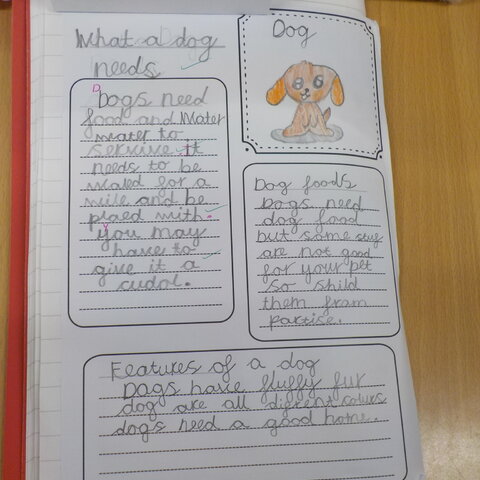 What a dog
needs
Dogs need
food and water
water to
servive it
needs to be
waled for a
mile and be
plaed with.
you may
have to
give it a
cudol.
Dog
Dog foods
Dogs need
dog food
but some stuf
are not good
for your pet
so shild
them from
partise.
Features of a dog
Dogs have fluffy fur
dog are all diferent colurs
dogs need a good home.